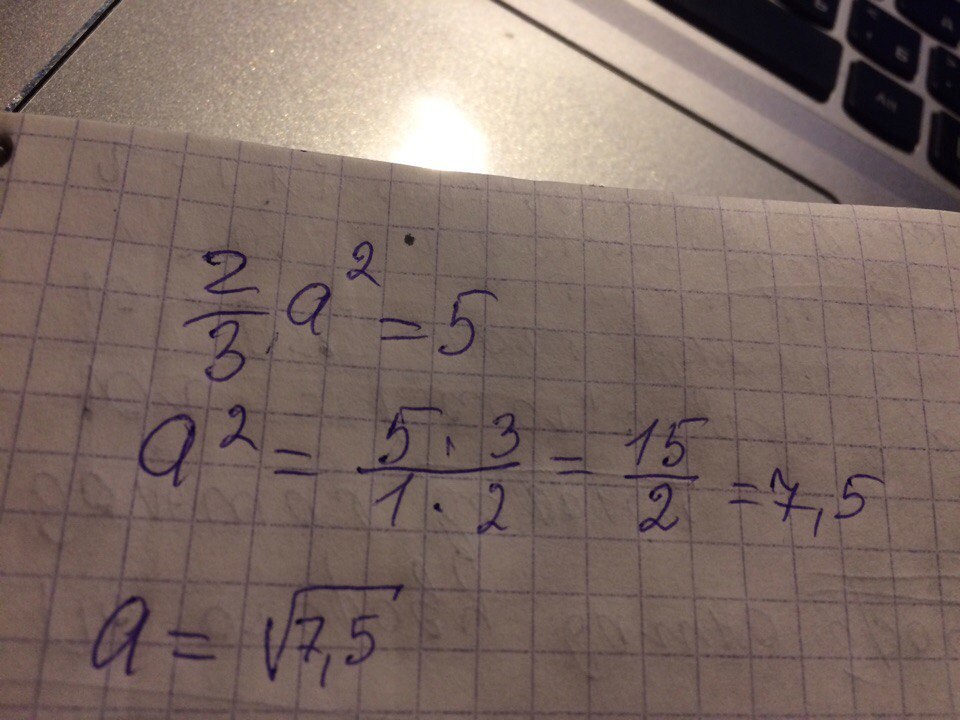 2/3 a² = 5
a² = 5·3/1·2 = 15/2 = 7,5
a = √7,5